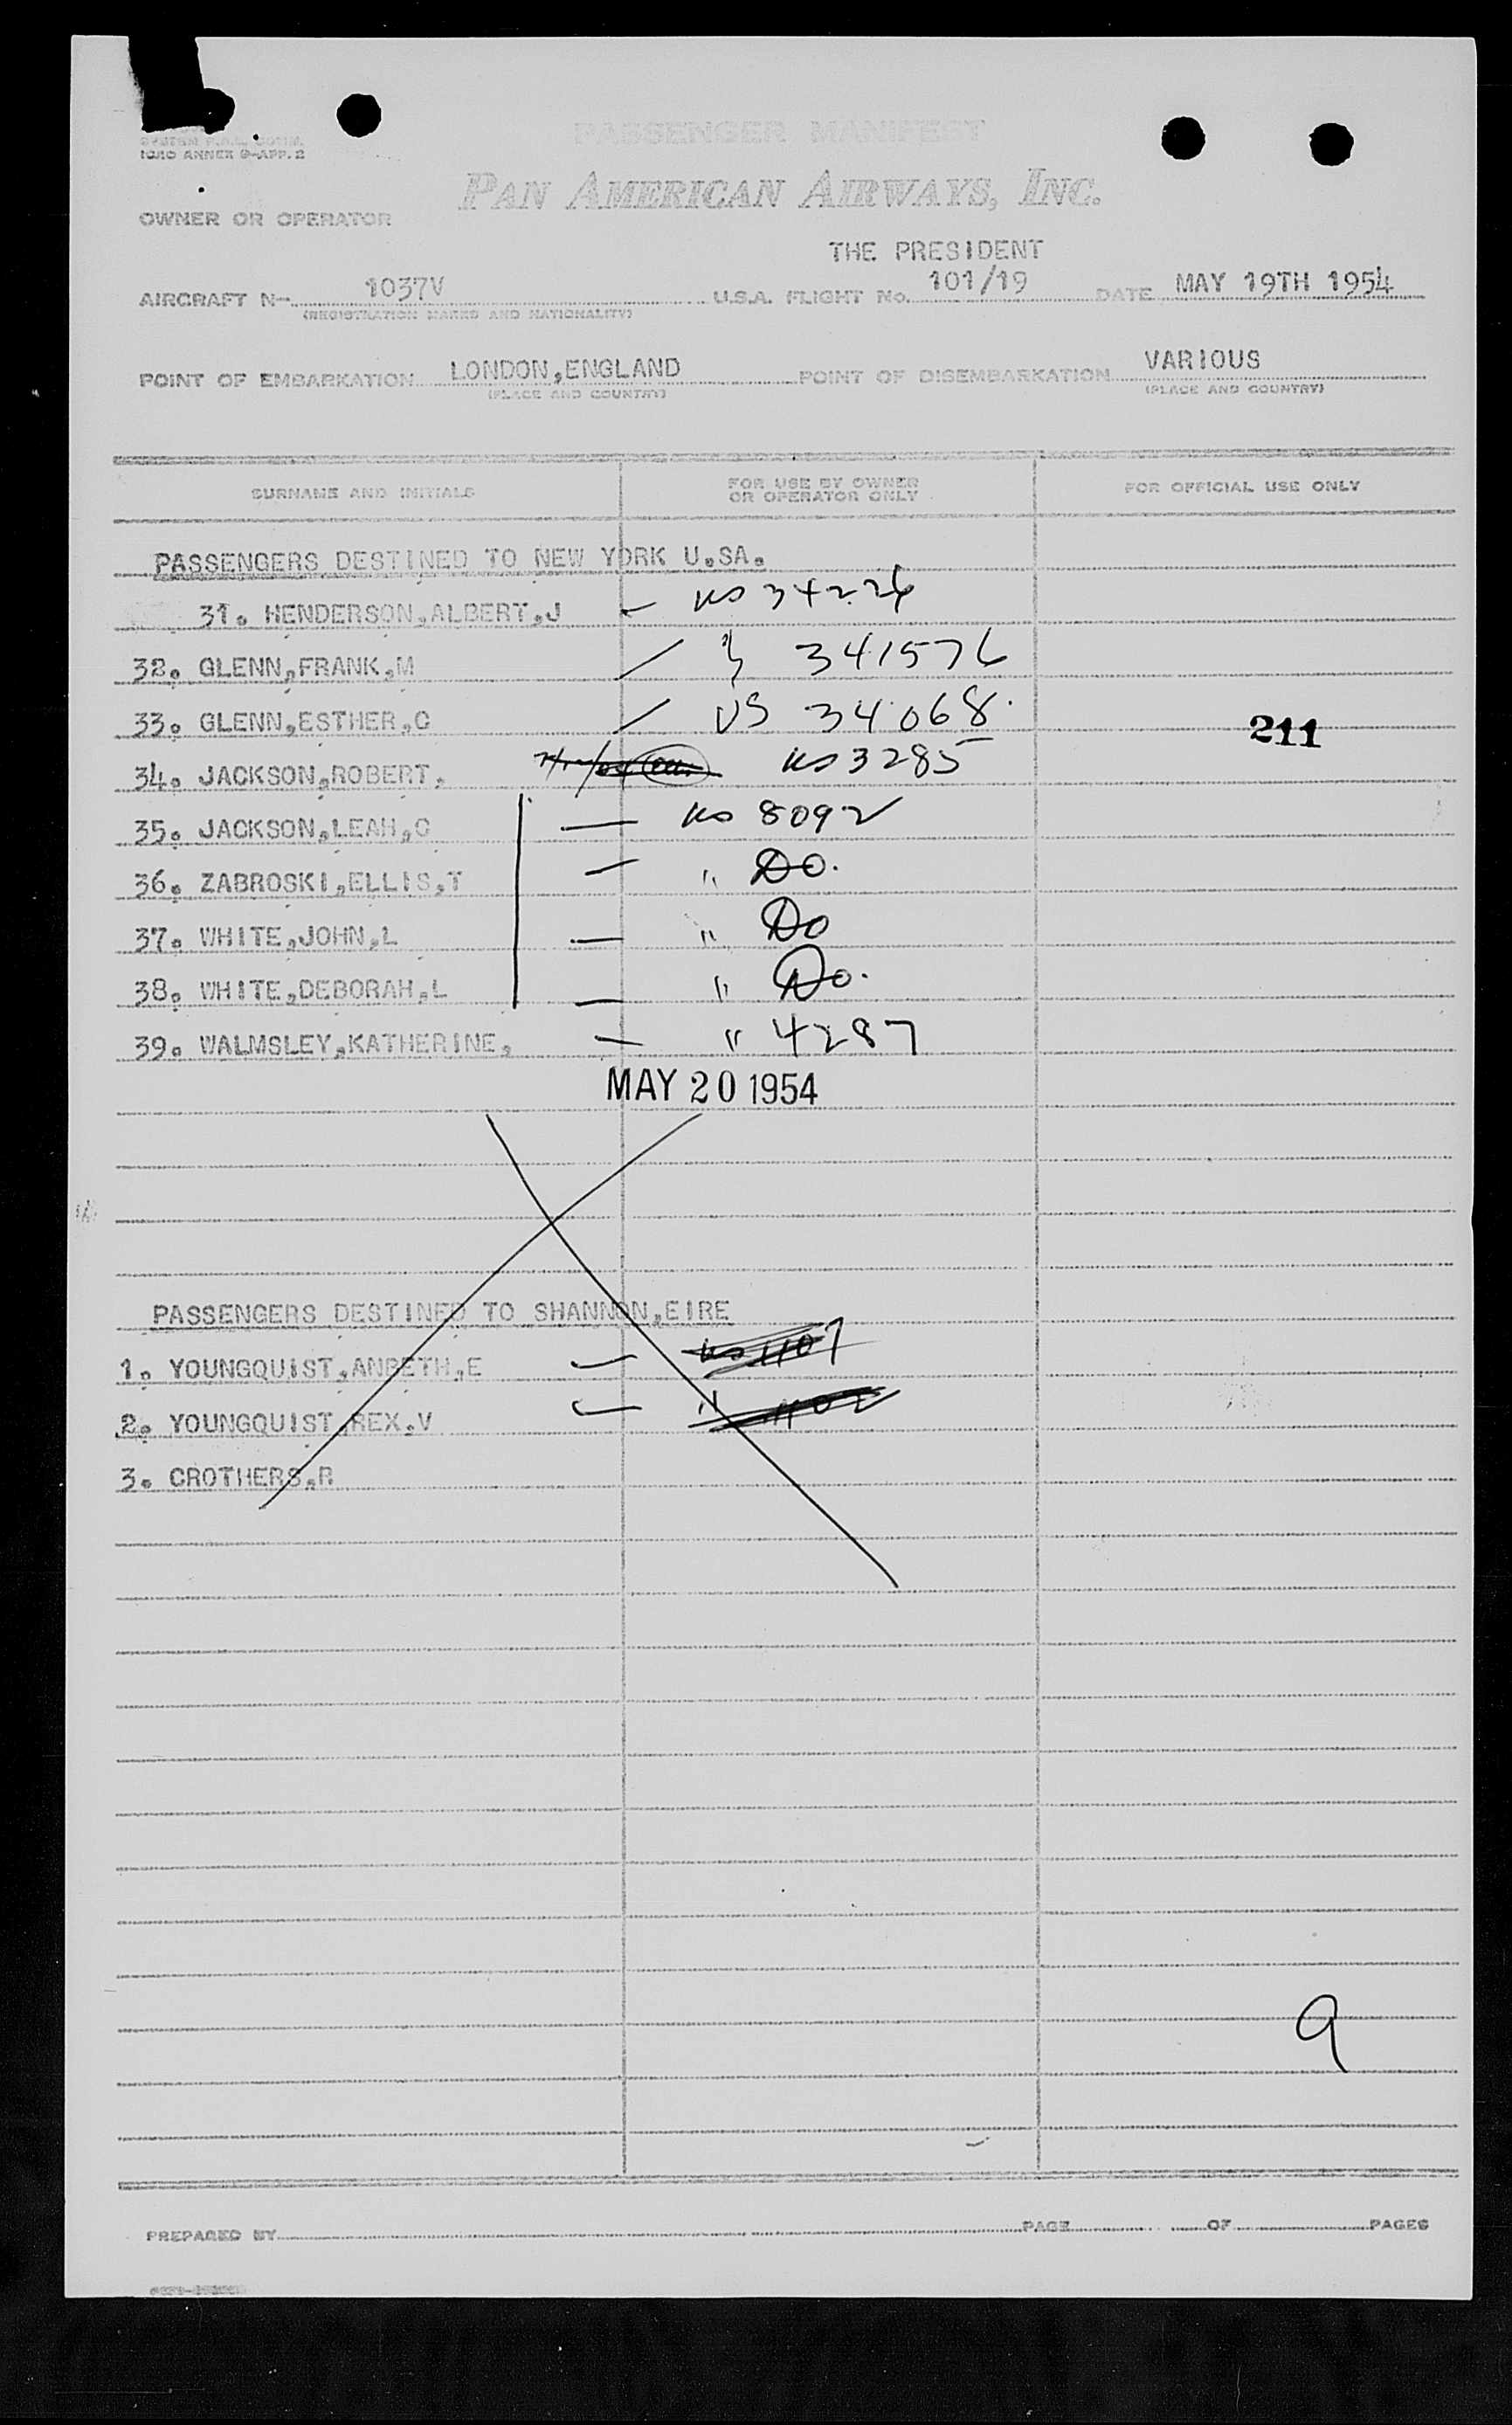 PASSENGER MANIFEST
ICAO ANNEX 9-APP. 2
PAN AMERICAN AIRWAYS, INC.
OWNER OR OPERATOR
THE PRESIDENT
AIRCRAFT N- 1037V U.S.A. FLIGHT No. 101/19 DATE MAY 19TH 1954
(REGISTRATION MARKS AND NATIONALITY)
POINT OF EMBARKATION LONDON,ENGLAND POINT OF DISEMBARKATION VARIOUS
(PLACE AND COUNTRY) (PLACE AND COUNTRY)
SURNAME AND INITIALS FOR USE BY OWNER OR OPERATOR ONLY FOR OFFICIAL USE ONLY
PASSENGERS DESTINED TO NEW YORK U.SA.
31. HENDERSON,ALBERT,J
32. GLENN,FRANK,M 341576
33. GLENN,ESTHER,C US 34068
211
34. JACKSON,ROBERT. US 3285
35. JACKSON,LEAH,C US 8092
36. ZABROSKI,ELLIS,T " DO.
37. WHITE,JOHN,L " DO
38. WHITE,DEBORAH,L " DO.
39. WALMSLEY,KATHERINE, " 4287
MAY 20 1954
PASSENGERS DESTINED TO SHANNON,EIRE
1. YOUNGQUIST,ANBETH,E
2. YOUNGQUIST,REX,V "
3. CROTHERS,R
9
PREPARED BY PAGE OF PAGES